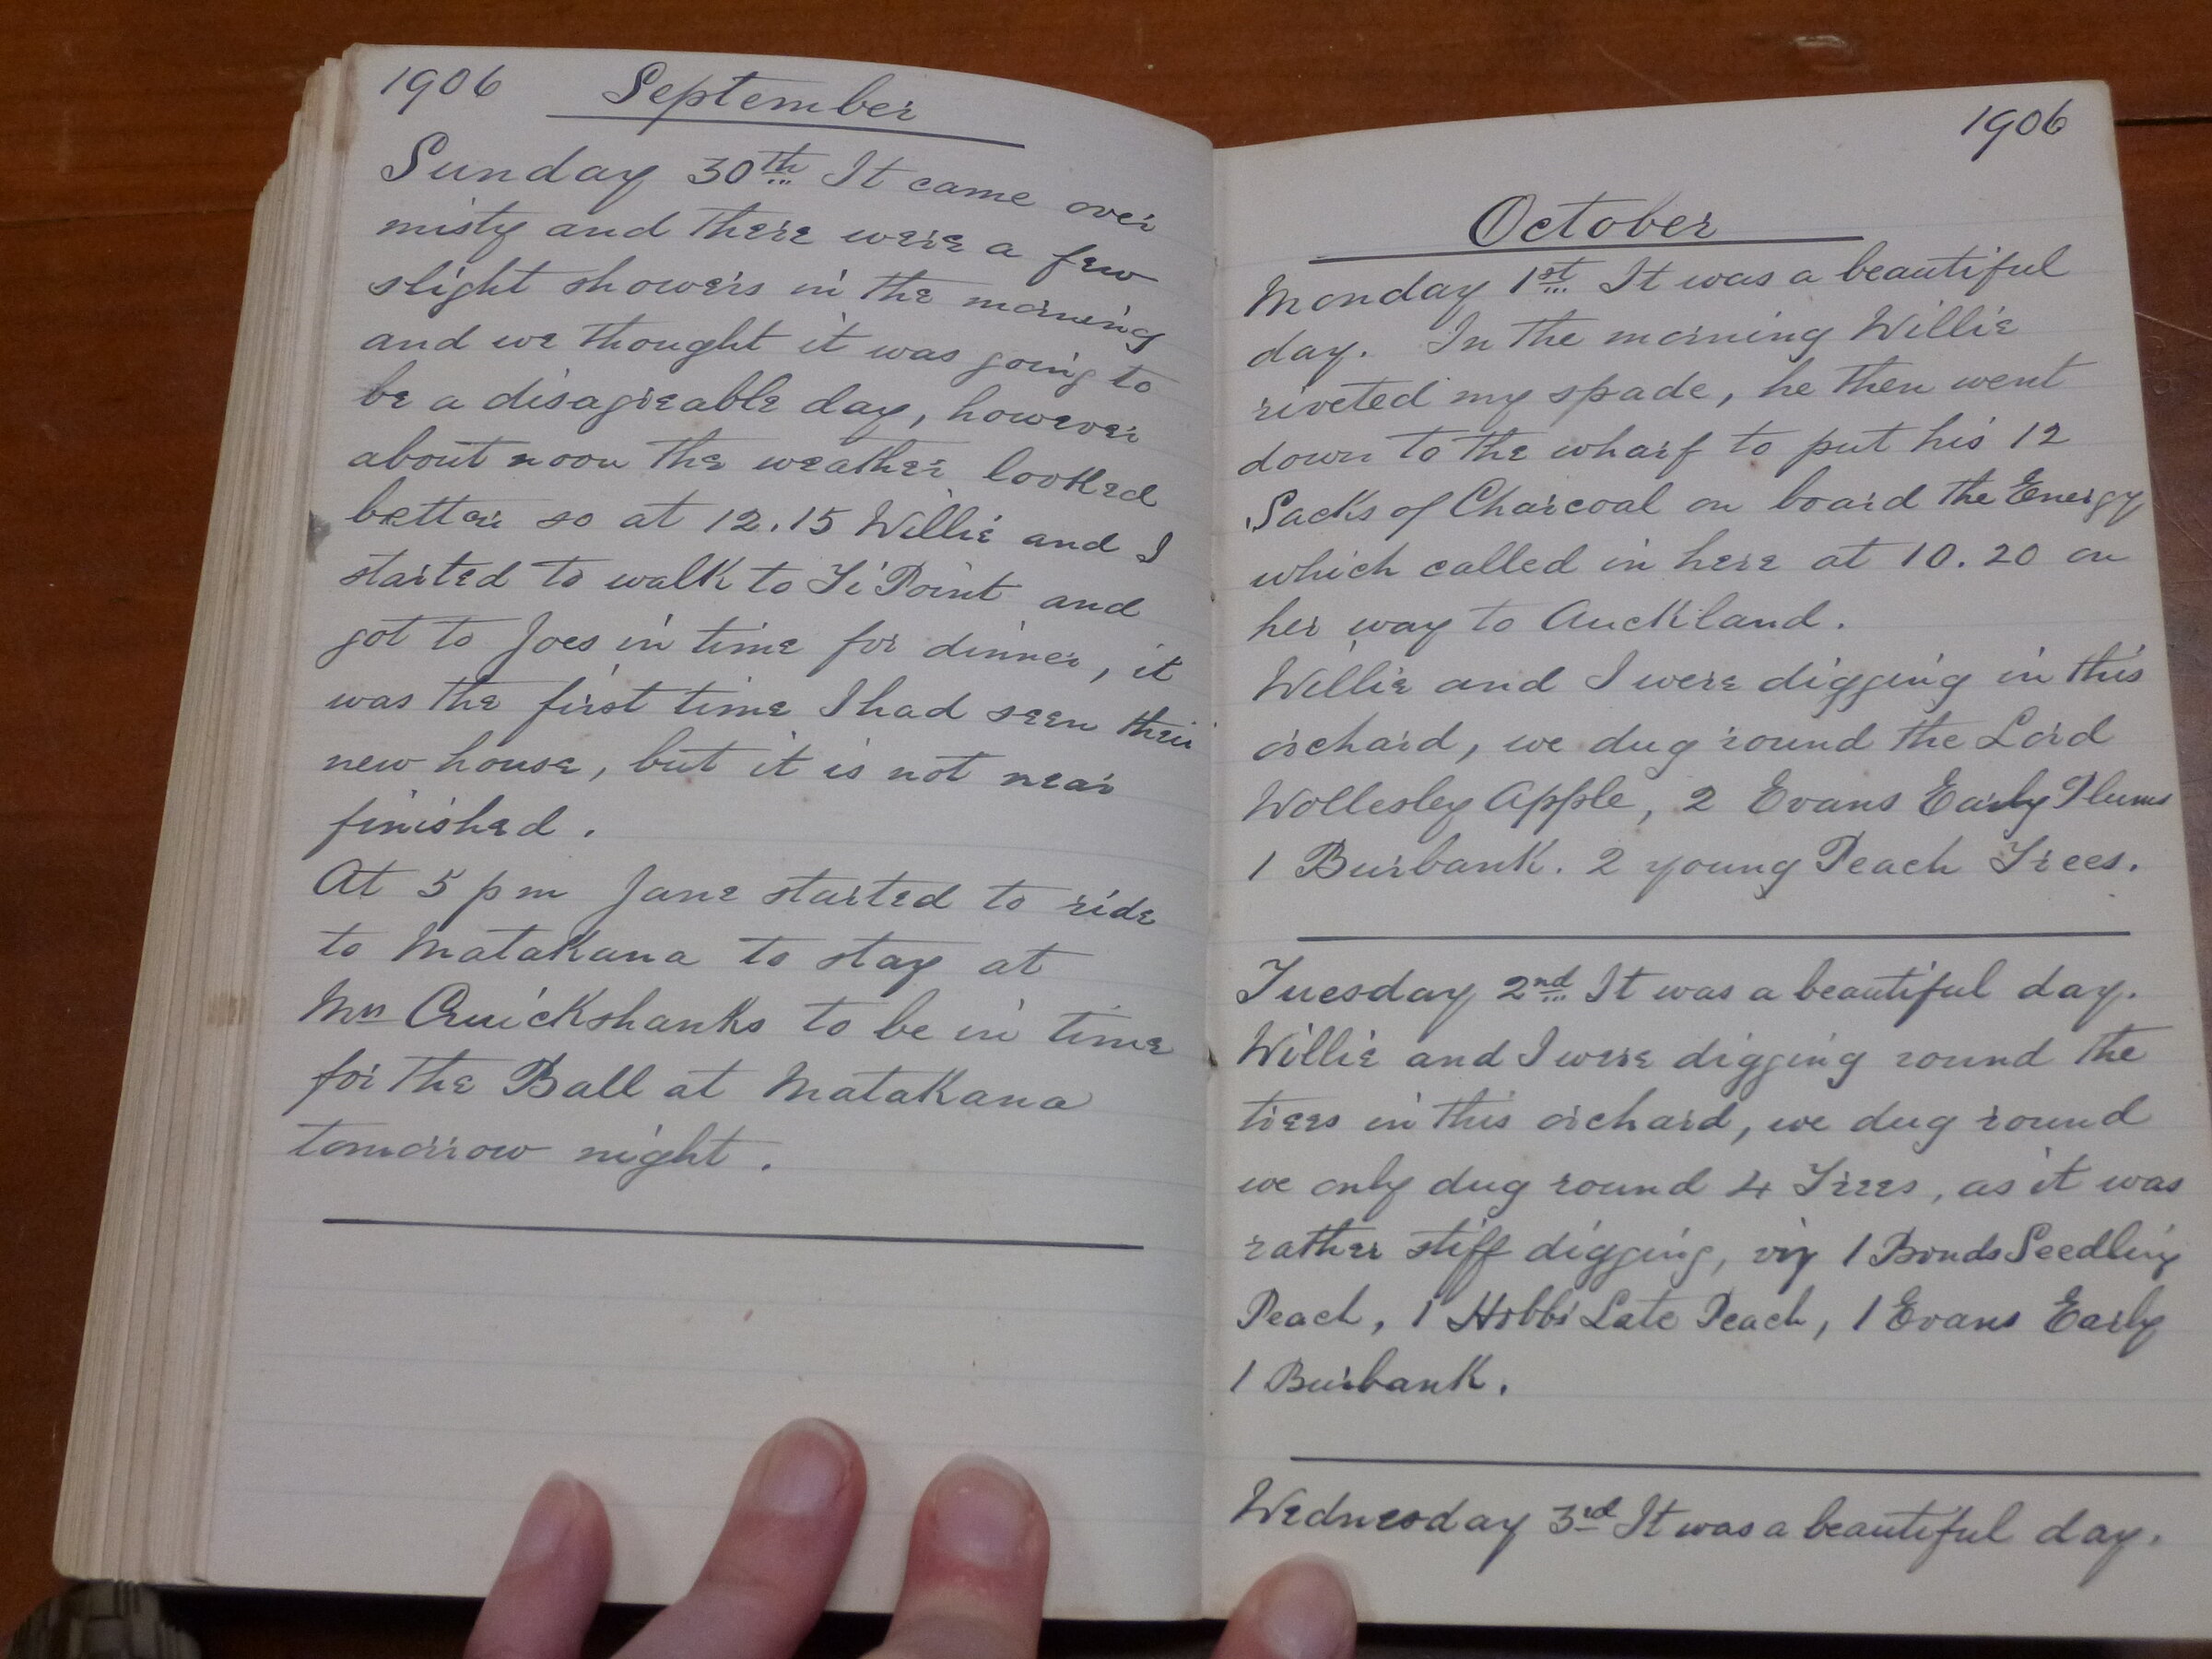 1906 September
Sunday 30th It came over
misty and there were a few
slight showers in the morning
and we thought it was going to
be a disagreeable day, however
about noon the weather looked
better so at 12.15 Willie and I
started to walk to Ti Point and
got to Joes in time for dinner, it
was the first time I had seen their
new house, but it is not near
finished.
At 5 pm Jane started to ride
to Matakana to stay at
Mrs Cruickshanks to be in time
for the Ball at Matakana
tomorrow night.
1906
October
Monday 1st It was a beautiful
day. In the morning Willie
riveted my spade, he then went
down to the wharf to put his 12
Sacks of Charcoal on board the Energy
which called in here at 10.20 on
her way to Auckland.
Willie and I were digging in this
orchard, we dug round the Lord
Wollesley Apple, 2 Evans Early Plums
1 Burbank. 2 young Peach Trees.
Tuesday 2nd It was a beautiful day.
Willie and I were digging round the
trees in this orchard, we dug round
we only dug round 4 Trees, as it was
rather stiff digging, viz 1 Bonds Seedling
Peach, 1 Hobbs Late Peach, 1 Evans Early
1 Burbank.
Wednesday 3rd It was a beautiful day.